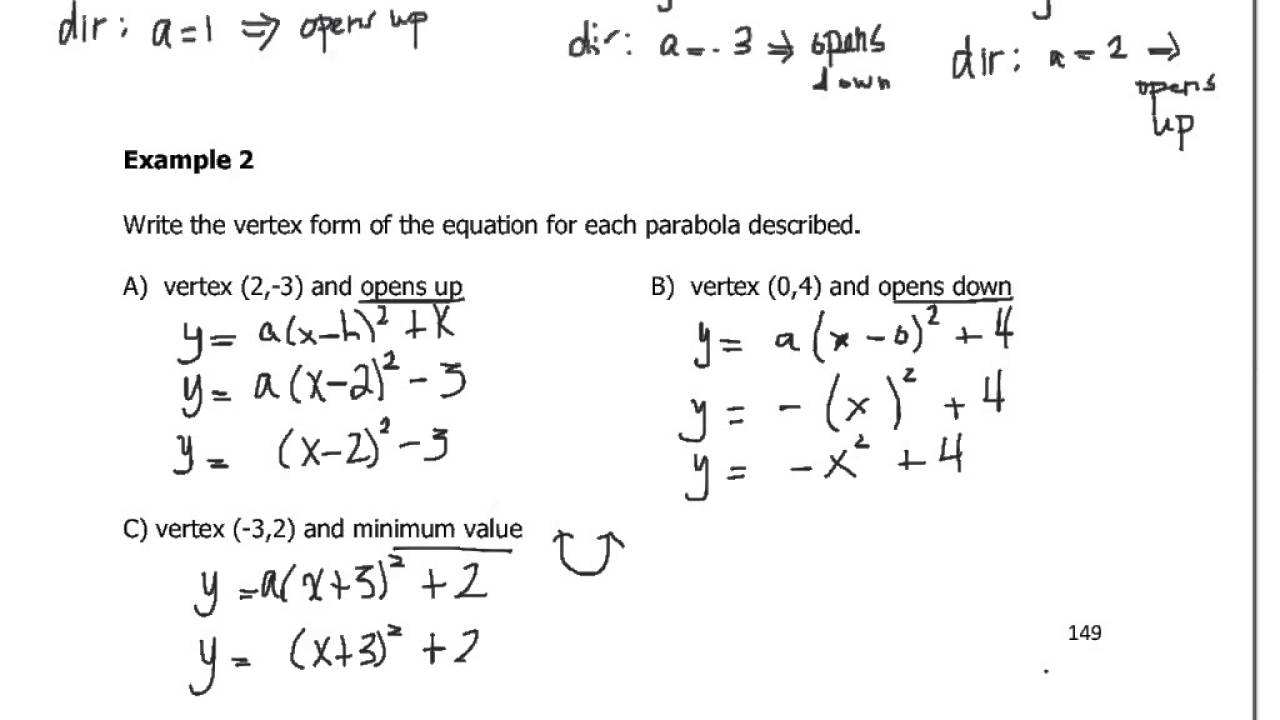 dir: a=1 ⇒ opens up
dir: a=-3 ⇒ opens
down
dir: a=2 →
opens
up
Example 2
Write the vertex form of the equation for each parabola described.
A) vertex (2,-3) and opens up
y= a(x-h)² +k
y= a(x-2)² -3
y= (x-2)² -3
B) vertex (0,4) and opens down
y= a(x-0)² +4
y= -(x)² +4
y= -x² +4
C) vertex (-3,2) and minimum value
y=a(x+3)² +2
y= (x+3)² +2
149